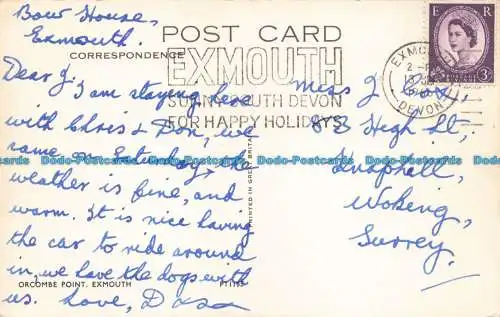 Bow House,
Exmouth.
POST CARD
CORRESPONDENCE
EXMOUTH
SUNNY SOUTH DEVON
FOR HAPPY HOLIDAYS
EXMOUTH
2-PM
DEVON
E R
3D
Dear J.
I am staying here
with Chris & Don, we
came on Saturday, the
weather is fine, and
warm. It is nice having
the car to ride around
in, we have the dogs with
us. Love,
Miss J.
83 High St.
Knaphill,
Woking,
Surrey.
PRINTED IN GREAT BRITAIN
ORCOMBE POINT, EXMOUTH
Postcards Postcards Postcards Postcards